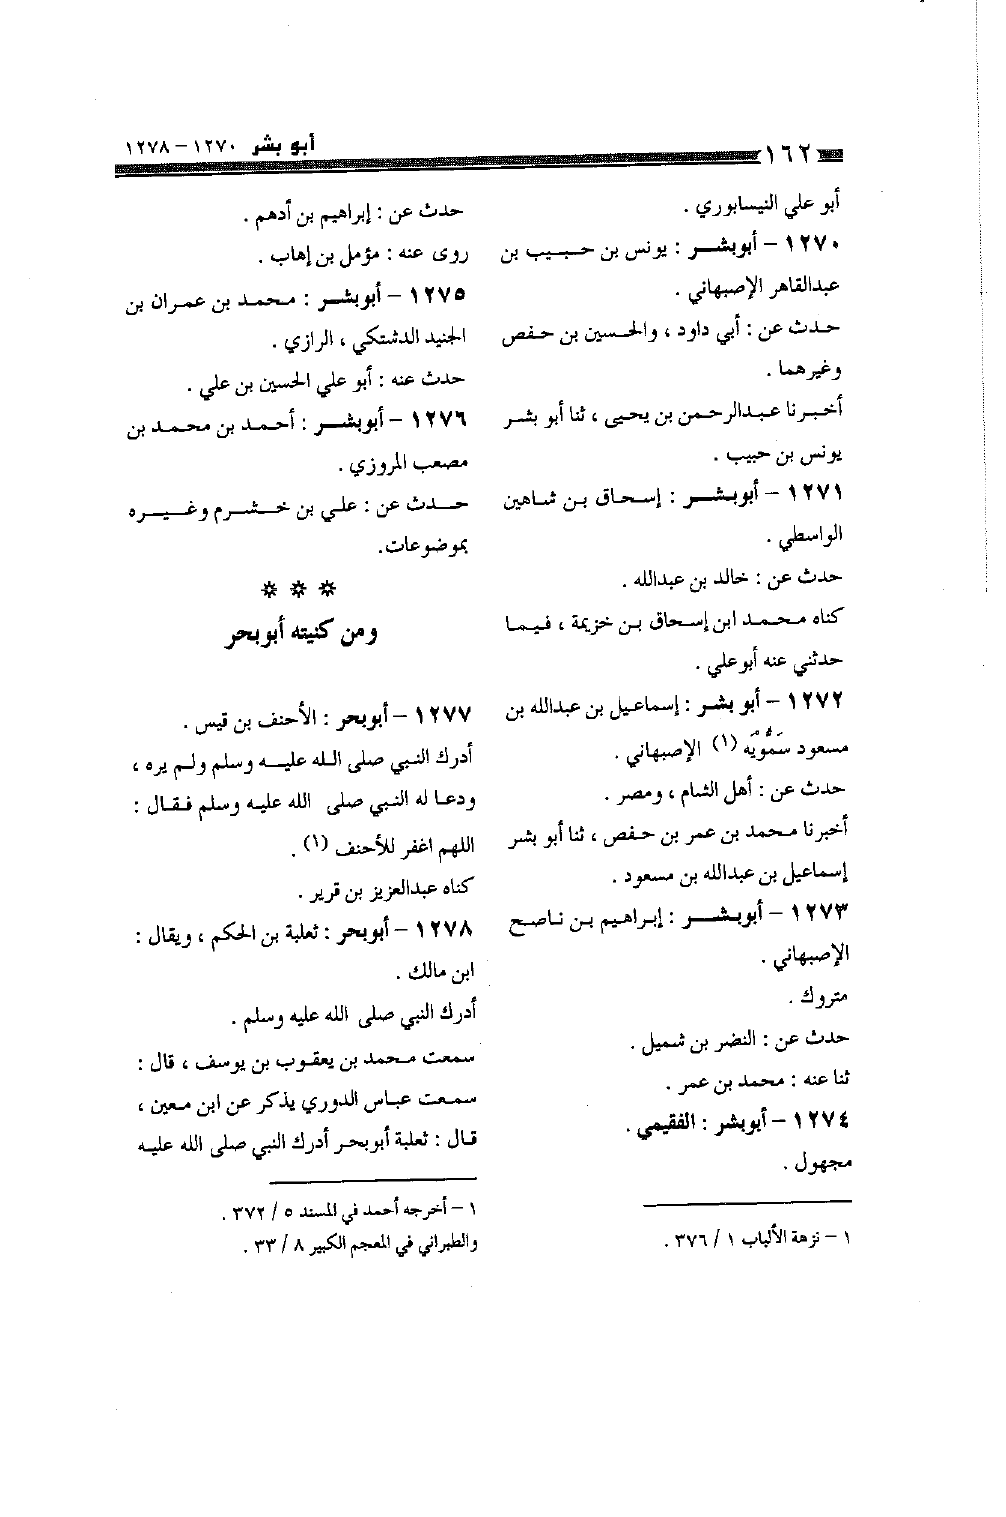 ١٦٢
أبو بشر ١٢٧٠ – ١٢٧٨
أبو علي النيسابوري .
١٢٧٠ – أبوبشر : يونس بن حبيب بن
عبدالقاهر الإصبهاني .
حدث عن : أبي داود ، والحسين بن حفص
وغيرهما .
أخبرنا عبدالرحمن بن يحيى ، ثنا أبو بشر
يونس بن حبيب .
١٢٧١ – أبوبشر : إسحاق بن شاهين
الواسطي .
حدث عن : خالد بن عبدالله .
كناه محمد ابن إسحاق بن خزيمة ، فيما
حدثني عنه أبوعلي .
١٢٧٢ – أبو بشر : إسماعيل بن عبدالله بن
مسعود سَمُّويَه (١) الإصبهاني .
حدث عن : أهل الشام ، ومصر .
أخبرنا محمد بن عمر بن حفص ، ثنا أبو بشر
إسماعيل بن عبدالله بن مسعود .
١٢٧٣ – أبوبشر : إبراهيم بن ناصح
الإصبهاني .
متروك .
حدث عن : النضر بن شميل .
ثنا عنه : محمد بن عمر .
١٢٧٤ – أبوبشر : الفقيمي .
مجهول .
١ – نزهة الألباب ١ / ٣٧٦ .
حدث عن : إبراهيم بن أدهم .
روى عنه : مؤمل بن إهاب .
١٢٧٥ – أبوبشر : محمد بن عمران بن
الجنيد الدشتكي ، الرازي .
حدث عنه : أبو علي الحسين بن علي .
١٢٧٦ – أبوبشر : أحمد بن محمد بن
مصعب المروزي .
حدث عن : علي بن خشرم وغيره
بموضوعات.
* * *
ومن كنيته أبوبحر
١٢٧٧ – أبوبحر : الأحنف بن قيس .
أدرك النبي صلى الله عليه وسلم ولم يره ،
ودعا له النبي صلى الله عليه وسلم فقال :
اللهم اغفر للأحنف (١) .
كناه عبدالعزيز بن قرير .
١٢٧٨ – أبوبحر : ثعلبة بن الحكم ، ويقال :
ابن مالك .
أدرك النبي صلى الله عليه وسلم .
سمعت محمد بن يعقوب بن يوسف ، قال :
سمعت عباس الدوري يذكر عن ابن معين ،
قال : ثعلبة أبوبحر أدرك النبي صلى الله عليه
١ – أخرجه أحمد في المسند ٥ / ٣٧٢ .
والطبراني في المعجم الكبير ٨ / ٣٣ .